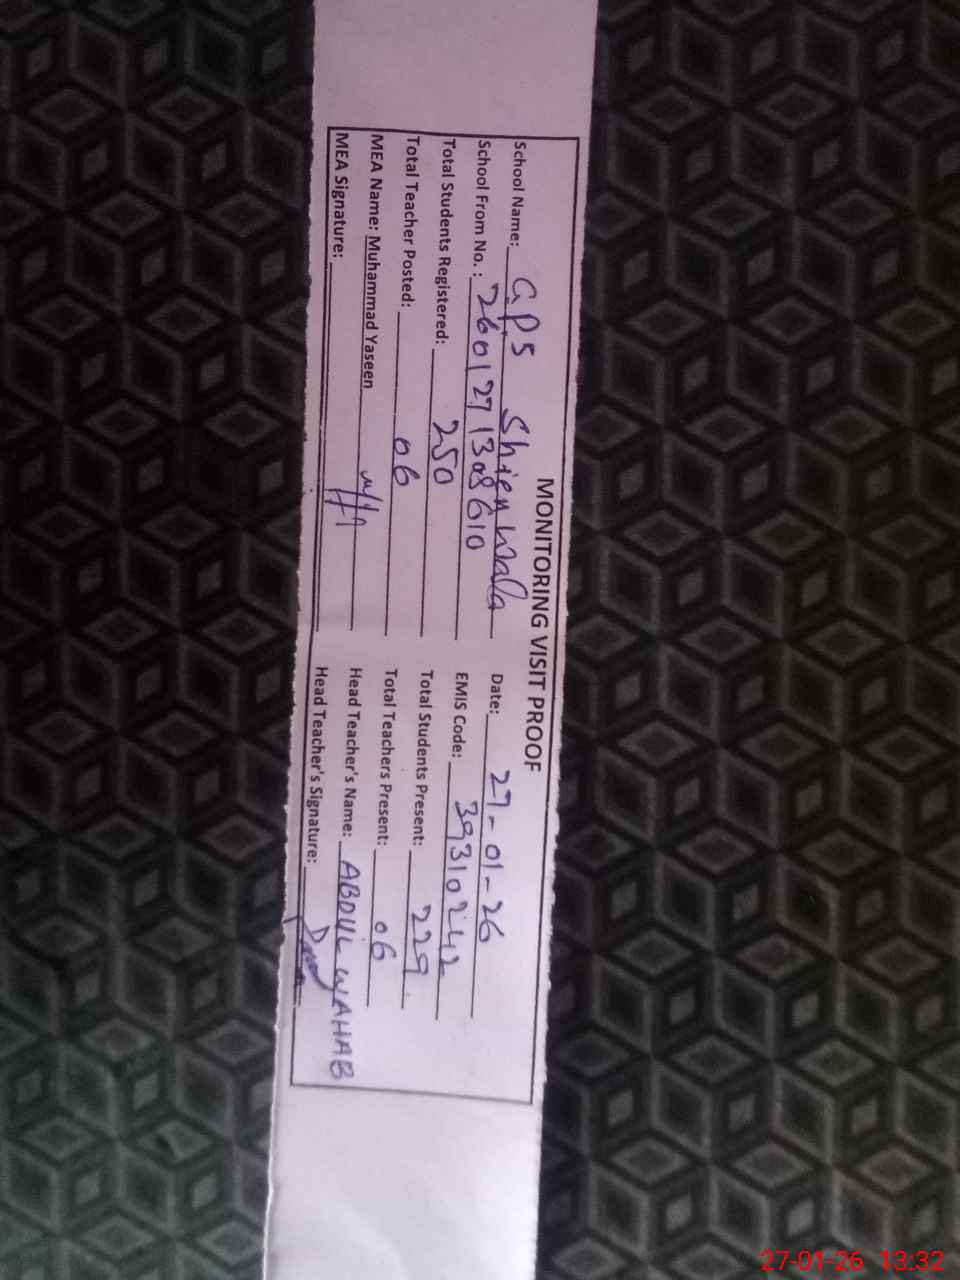 MONITORING VISIT PROOF
School Name: GPS Shien wala Date: 27-01-26
School From No. : 2601271308610 EMIS Code: 39310242
Total Students Registered: 250 Total Students Present: 229
Total Teacher Posted: 06 Total Teachers Present: 06
MEA Name: Muhammad Yaseen Head Teacher's Name: ABDUL WAHAB
MEA Signature: Head Teacher's Signature:
27-01-26 13:32